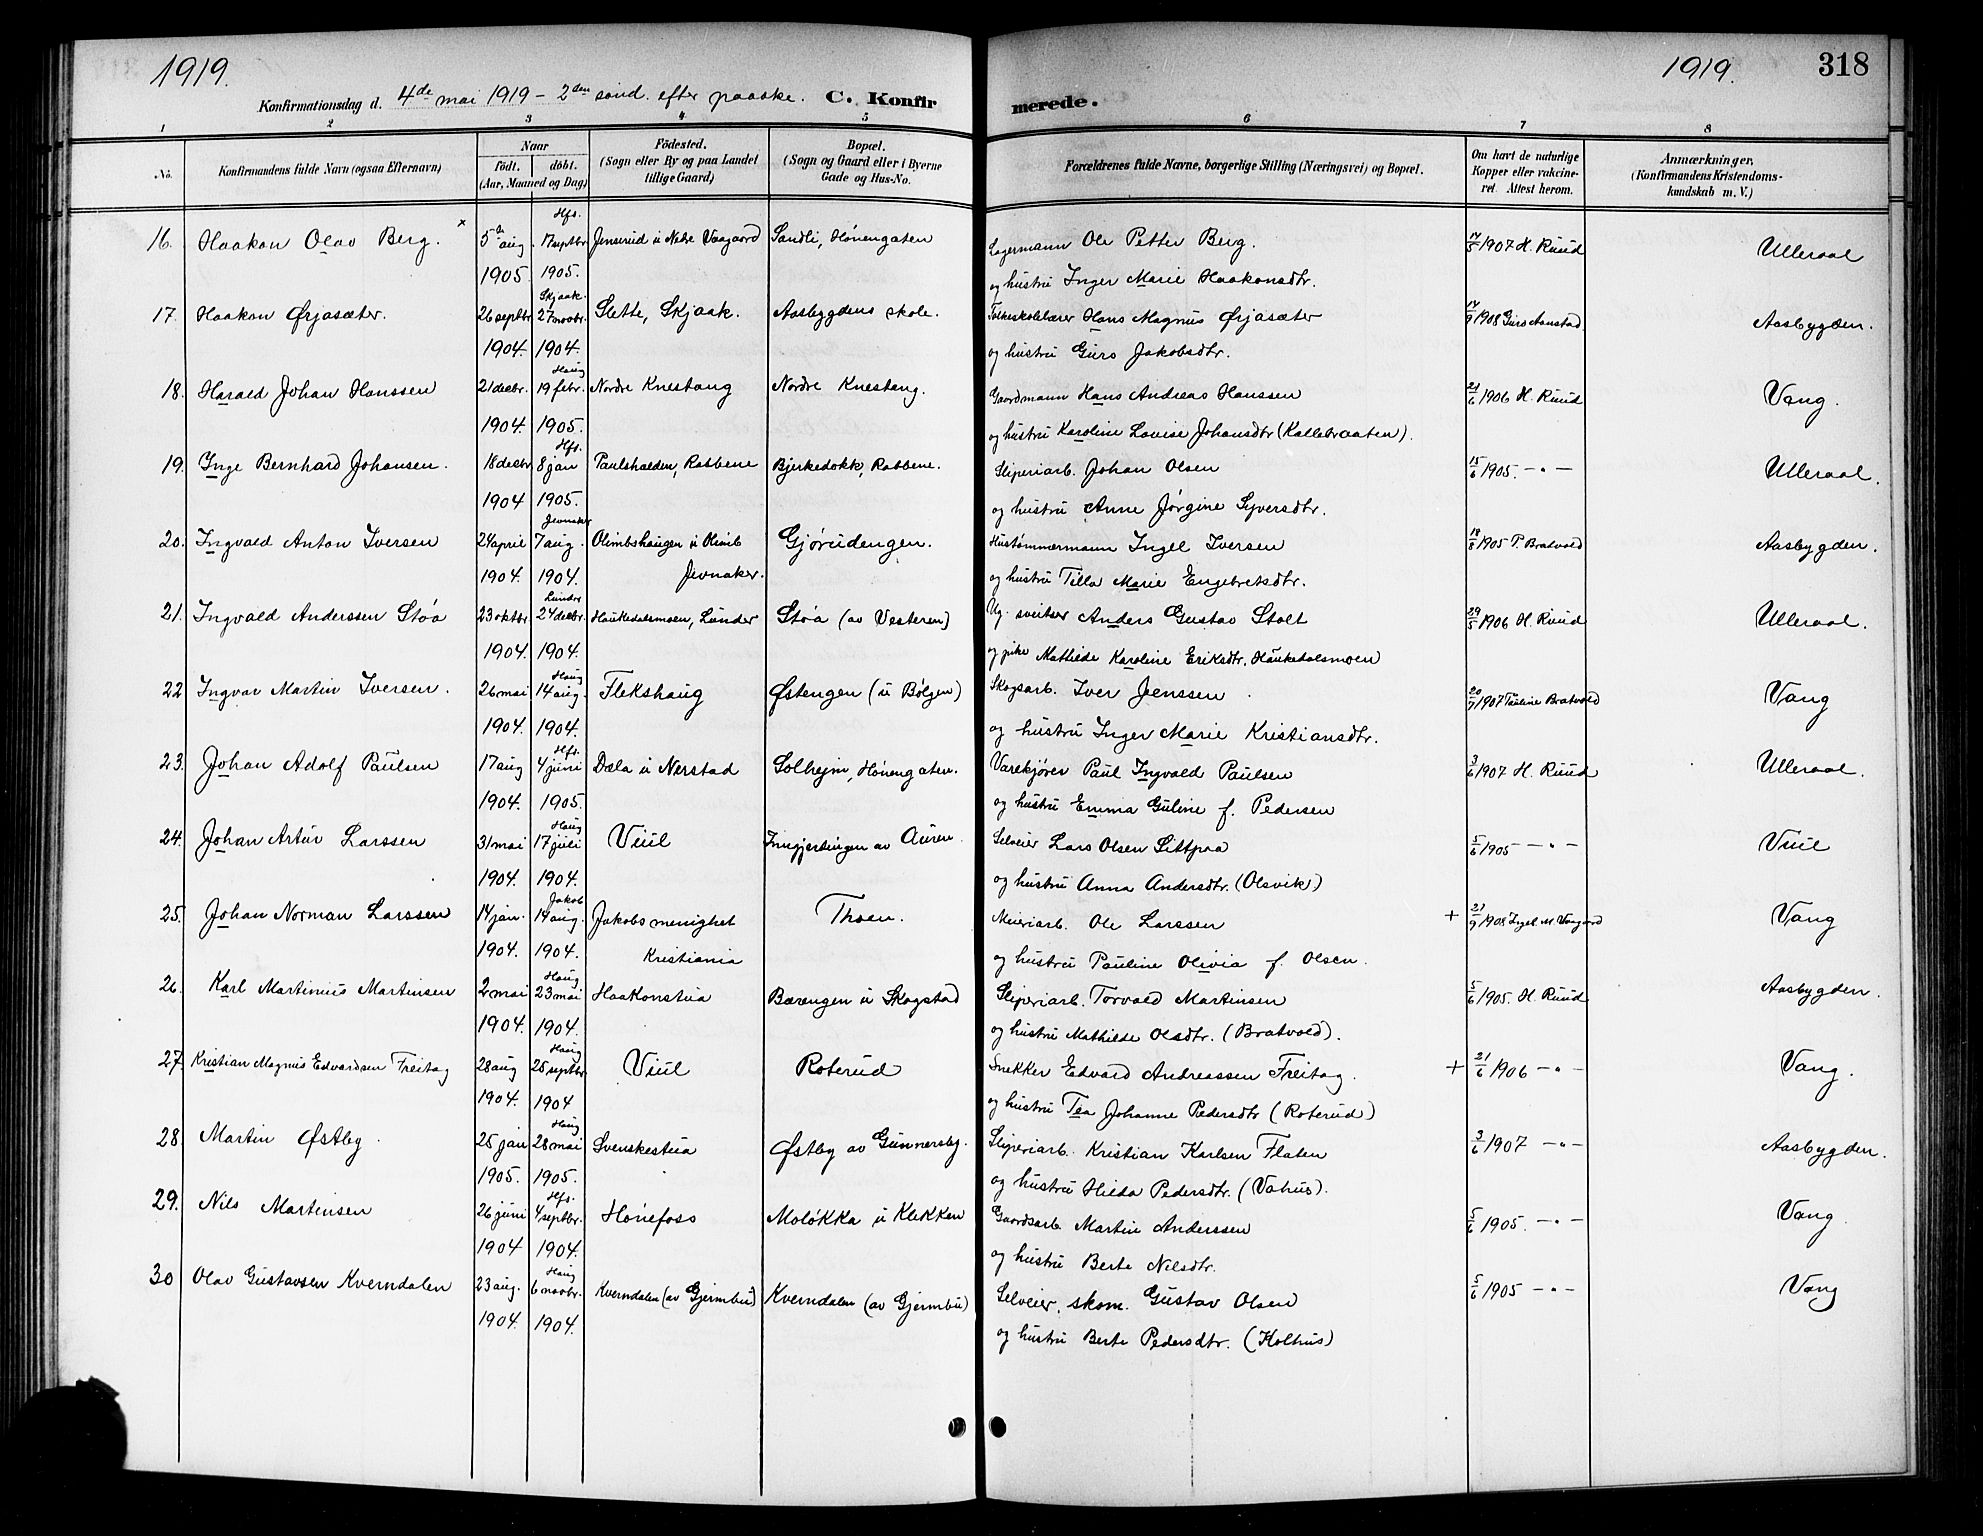 1919.
1919.
318
Konfirmationsdag d. 4de mai 1919 – 2den sønd. efter paaske. C. Konfirmerede.
1 2 3 4 5 6 7 8
No. Konfirmandens fulde Navn (ogsaa Efternavn) Naar født. døbt. (Aar, Maaned og Dag) Fødested. (Sogn eller By og paa Landet tillige Gaard) Bopæl. (Sogn og Gaard eller i Byerne Gade og Hus-No. Forældrenes fulde Navne, borgerlige Stilling (Næringsvei) og Bopæl. Om havt de naturlige Kopper eller vakcineret. Attest herom. Anmærkninger, (Konfirmandens Kristendomskundskab m. V.)
Hfs.
16. Haakon Olav Berg. x 5 aug. 17 septbr Jenserud u Nedre Vaagaard Sandli, Hönengaten Lagermann Ole Petter Berg. 14/5 1907 H. Ruud Ulleraal
1905 1905. og hustru Inger Marie Haakonsdtr.
Skjaak.
17. Haakon Ørjasæter. 26 septbr 27 novbr. Slette, Skjaak. Aasbygdens skole. Folkeskolelærer Hans Magnus Ørjasæter 14/9 1908 Guro Aanstad Aasbygden.
1904. 1904. og hustru Guro Jakobsdtr.
Haug
18. Harald Johan Hanssen 21 decbr. 19 febr. Nordre Knestang Nordre Knestang. Gaardmann Hans Andreas Hanssen 21/6 1906 H. Ruud Vang.
1904. 1905. og hustru Karoline Lovise Johansdtr (Kallebraaten).
Hfs.
19. Inge Bernhard Johansen. 18 decbr 8 jan Paulshalden, Rabbene Bjerkedokk, Rabbene. Sliperiarb. Johan Olsen 15/6 1905. – " – Ulleraal.
1904 1905. og hustru Anne Jørgine Syversdtr.
Jevnaker
20. Ingvald Anton Iversen 24 april 7 aug. Olimbshaugen u Olimb Gjørudengen. Hustømmermann Ingel Iversen 18/8 1905 P. Bratvold Aasbygden.
1904. 1904. Jevnaker. og hustru Tilla Marie Engebretsdtr.
Lunder
21. Ingvald Anderssen Støa 23 oktbr. 24 decbr. Haukedalsmoen, Lunder Støa (av Vesteren) Ug. sveitser Anders Gustav Stolt 29/5 1906 H. Ruud Ulleraal.
1904. 1904. og pike Mathilde Karoline Eriksdtr. Haukedalsmoen
Haug
22 Ingvar Martin Iversen. 26 mai 14 aug. Flekshaug Østengen (u Bølgen) Skogsarb. Iver Jenssen 20/9 1907 Pauline Bratvold Vang
1904. 1904. og hustru Inger Marie Kristiansdtr.
Hfs.
23. Johan Adolf Paulsen 17 aug 4 juni Dæla u Nerstad Solhejm, Hönengaten. Varekjører Paul Ingvald Paulsen 3/6 1907 H. Ruud Ulleraal.
1904. 1905. og hustru Emma Guline f. Pedersen
Haug
24. Johan Artur Larssen 31 mai 17 juli Viul Inngjerdingen av Auren. Selveier Lars Olsen Sittpaa 5/6 1905 – " – Viul
1904. 1904. og hustru Anna Andersdtr. (Olsvik)
Jakob
25. Johan Norman Larssen 14 jan. 14 aug. Jakobs menighet Thoen. Meieriarb. Ole Larssen + 21/9 1908 Ingel. M. Vaagaard Vang
1904. 1904. Kristiania og hustru Pauline Olivia f. Olsen.
Haug
26. Karl Martinius Martinsen 2 mai 23 mai Haakonstua Bærengen u Skogstad Sliperiarb. Torvald Martinsen 5/6 1905. H. Ruud Aasbygden.
1904. 1904. og hustru Mathilde Olsdtr. (Bratvold).
Haug
27. Kristian Magnus Edvardsen Freitag 28 aug 25 septbr. Viul Roterud Snekker Edvard Andreassen Freitag. + 21/6 1906 – " – Vang.
1904. 1904 og hustru Tea Johanne Pedersdtr (Roterud)
Haug
28 Martin Østby. 25 jan 28 mai Svenskestua Østby av Gunnersby. Sliperiarb. Kristian Karlsen Flaten 3/6 1907 – " – Aasbygden.
1905. 1905. og hustru Hilda Pedersdtr. (Vahus).
Hfs.
29. Nils Martinsen 26 juni 4 septbr. Hönefoss Moløkka u Klekken Gaardsarb. Martin Anderssen 5/6 1905. – " – Vang
1904 1904. og hustru Berte Nilsdtr.
Haug
30 Olav Gustavsen Kverndalen 23 aug. 6 novbr. Kverndalen (av Gjermbu) Kverndalen (av Gjermbu) Selveier, skom. Gustav Olsen 5/6 1905 – " – Vang
1904. 1904. og hustru Berte Pedersdtr. (Kolhus)